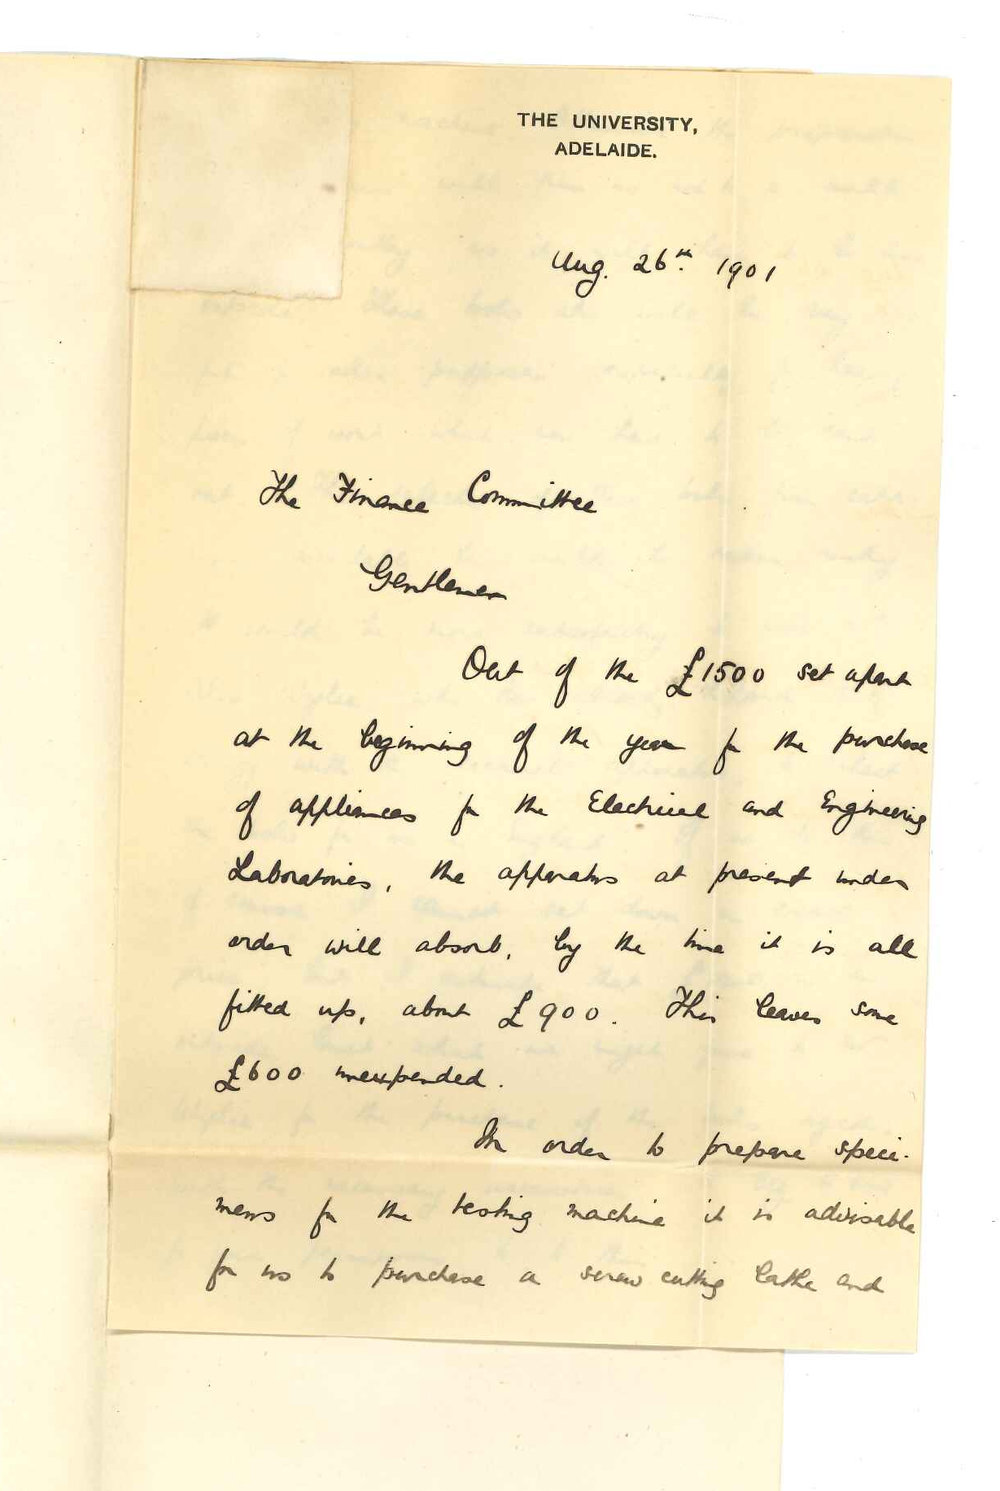 THE UNIVERSITY,
ADELAIDE.
Aug. 26th. 1901
The Finance Committee
Gentlemen
Out of the £1500 set apart
at the beginning of the year for the purchase
of appliances for the Electrical and Engineering
Laboratories, the apparatus at present under
order will absorb, by the time it is all
fitted up, about £900. This leaves some
£600 unexpended.
In order to prepare speci-
mens for the testing machine it is advisable
for us to purchase a screw cutting lathe and